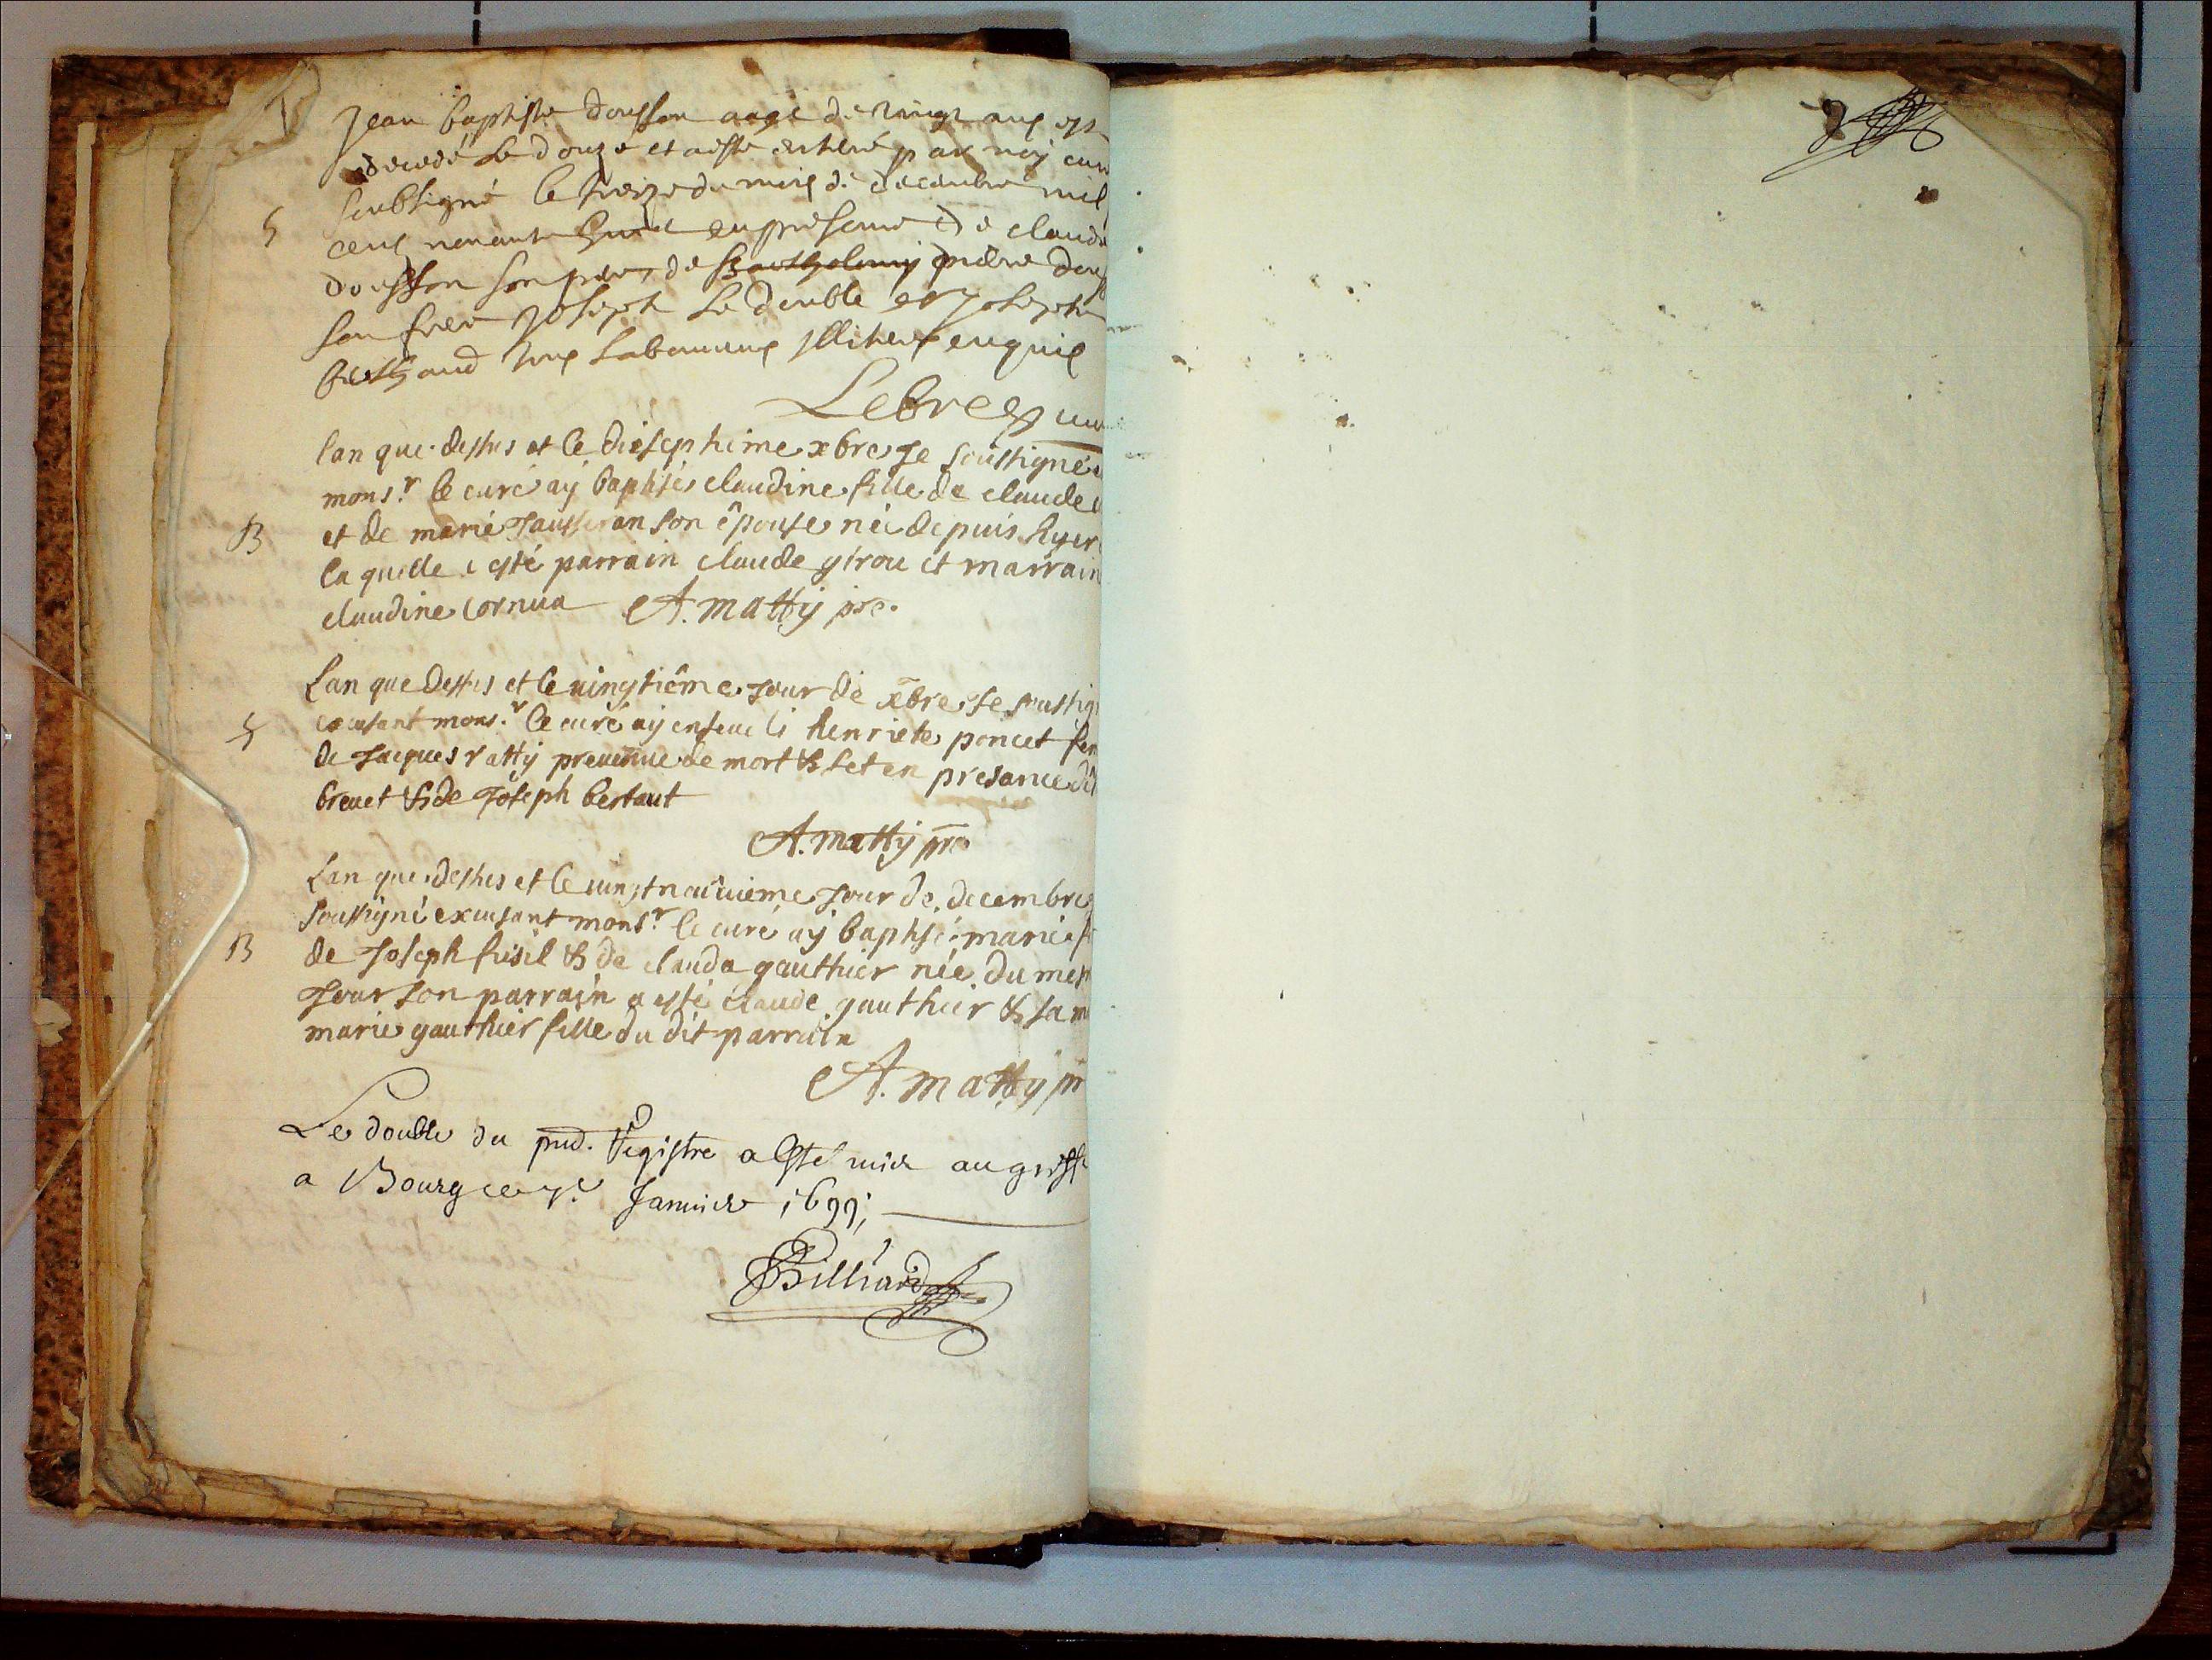 Jean baptiste dousson aagé de vingt ans est
decedé Le douze et a esté enterré par moy curé
soubsigné le treize du mois de decembre mil
S
cens nonante huict en presence de claude
dousson son pere, de pierre dous
son frere Joseph Le double et Joseph
berthaud tous Laboureurs illiteres enquis
Lebree
lan que dessus et le diéseptieme xbre Je soussigné
mons.r le curé aÿ baptisé claudine fille de claude
B
et de marie Jausseran son épouse née depuis hyer
la quelle a esté parrain claude girou et marrain
claudine cornua A. mattÿ pre.
Lan que dessus et le vingtiême Jour de xbre Je soussig
S
excusant mons.r le curé aÿ enseveli henriete poncet fem
de Jacques rattÿ prevenue de mort & set en presance de
brevet & de Joseph bertaut
A. mattÿ pre
Lan que dessus et le vingtneuvieme Jour de decembre
soussigné excusant mons.r le curé aÿ baptisé marie fi
B
de Joseph fusil & de clauda gauthier née du mesm
Jour son parrain a esté claude gauthier & sa m
marie gauthier fille du dit parrain
A. mattÿ pr
Le double du pnd. Registre a esté mis au greffe
a Bourg ce Janvier 1699;
Billiard